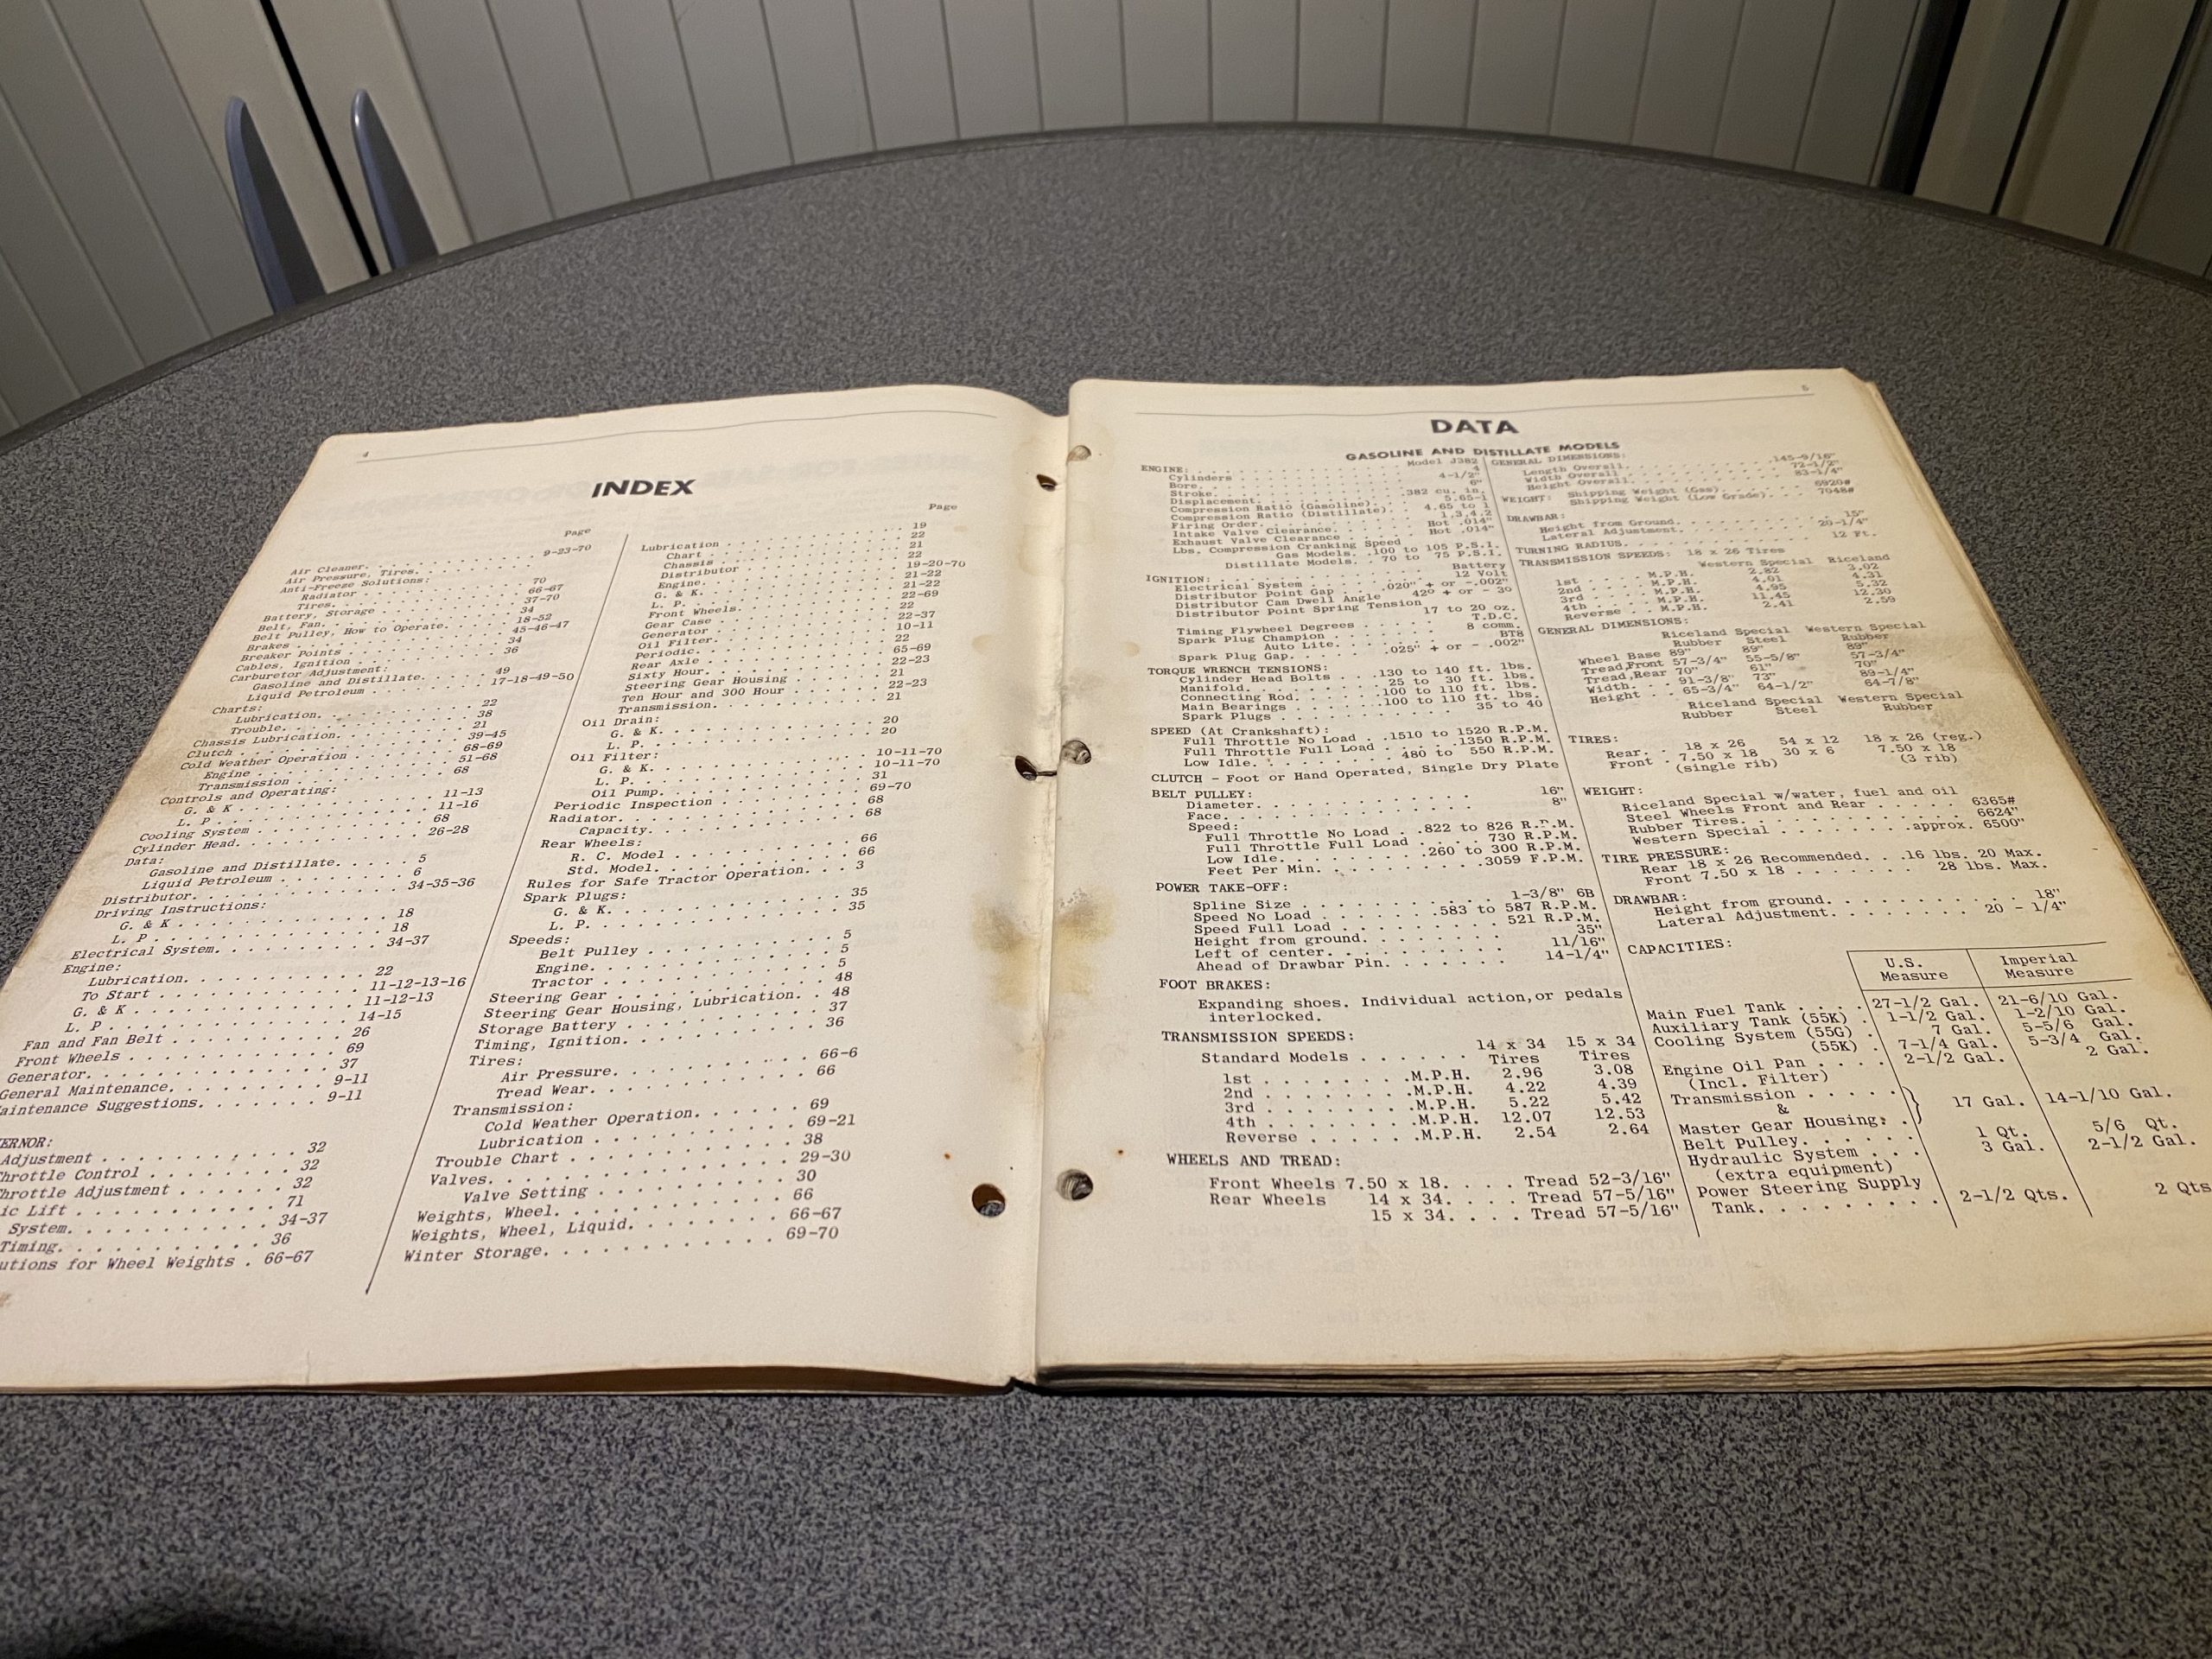 4
INDEX
Page
Air Cleaner. . . . . . . . . . . . 9-23-70
Air Pressure, Tires. . . . . . . .
Anti-Freeze Solutions:
Radiator . . . . . . . . . . . 70
Tires. . . . . . . . . . . . . 66-67
Battery, Storage . . . . . . . . . 37-70
Belt, Fan. . . . . . . . . . . . . 34
Belt Pulley, How to Operate. . . . 18-52
Brakes . . . . . . . . . . . . . . 45-46-47
Breaker Points . . . . . . . . . . 34
Cables, Ignition . . . . . . . . . 36
Carburetor Adjustment:
Gasoline and Distillate. . . . 49
Liquid Petroleum . . . . . . . 17-18-49-50
Charts:
Lubrication. . . . . . . . . . 22
Trouble. . . . . . . . . . . . 38
Chassis Lubrication. . . . . . . . 21
Clutch . . . . . . . . . . . . . . 39-45
Cold Weather Operation . . . . . . 68-69
Engine . . . . . . . . . . . . 51-68
Transmission . . . . . . . . . 68
Controls and Operating:
G. & K . . . . . . . . . . . . 11-13
L. P . . . . . . . . . . . . . 11-16
Cooling System . . . . . . . . . . 68
Cylinder Head. . . . . . . . . . . 26-28
Data:
Gasoline and Distillate. . . . 5
Liquid Petroleum . . . . . . . 6
Distributor. . . . . . . . . . . . 34-35-36
Driving Instructions:
G. & K . . . . . . . . . . . . 18
L. P . . . . . . . . . . . . . 18
Electrical System. . . . . . . . . 34-37
Engine:
Lubrication. . . . . . . . . . 22
To Start . . . . . . . . . . . 11-12-13-16
G. & K . . . . . . . . . . . . 11-12-13
L. P . . . . . . . . . . . . . 14-15
Fan and Fan Belt . . . . . . . . . 26
Front Wheels . . . . . . . . . . . 69
Generator. . . . . . . . . . . . . 37
General Maintenance. . . . . . . . 9-11
aintenance Suggestions. . . . . . . 9-11
ERNOR:
Adjustment . . . . . . . . . . 32
hrottle Control . . . . . . . . 32
hrottle Adjustment . . . . . . 32
ic Lift . . . . . . . . . . . 71
System. . . . . . . . . . . . 34-37
Timing. . . . . . . . . . . . 36
utions for Wheel Weights . 66-67
Page
Lubrication . . . . . . . . . . . 19
Chart . . . . . . . . . . . . 22
Chassis . . . . . . . . . . . 21
Distributor . . . . . . . . . 22
Engine. . . . . . . . . . . . 19-20-70
G. & K. . . . . . . . . . . . 21-22
L. P. . . . . . . . . . . . . 21-22
Front Wheels. . . . . . . . . 22-69
Gear Case . . . . . . . . . . 22
Generator . . . . . . . . . . 22-37
Oil Filter. . . . . . . . . . 10-11
Periodic. . . . . . . . . . . 22
Rear Axle . . . . . . . . . . 65-69
Sixty Hour. . . . . . . . . . 22-23
Steering Gear Housing . . . . 21
Ten Hour and 300 Hour . . . . 22-23
Transmission. . . . . . . . . 21
Oil Drain:
G. & K. . . . . . . . . . . . 20
L. P. . . . . . . . . . . . . 20
Oil Filter:
G. & K. . . . . . . . . . . . 10-11-70
L. P. . . . . . . . . . . . . 10-11-70
Oil Pump. . . . . . . . . . . 31
Periodic Inspection . . . . . . . 69-70
Radiator. . . . . . . . . . . . . 68
Capacity. . . . . . . . . . . 68
Rear Wheels:
R. C. Model . . . . . . . . . 66
Std. Model. . . . . . . . . . 66
Rules for Safe Tractor Operation. . . 3
Spark Plugs:
G. & K. . . . . . . . . . . . 35
L. P. . . . . . . . . . . . . 35
Speeds:
Belt Pulley . . . . . . . . . 5
Engine. . . . . . . . . . . . 5
Tractor . . . . . . . . . . . 5
Steering Gear . . . . . . . . . . 48
Steering Gear Housing, Lubrication. . 48
Storage Battery . . . . . . . . . 37
Timing, Ignition. . . . . . . . . 36
Tires:
Air Pressure. . . . . . . . . 66-6
Tread Wear. . . . . . . . . . 66
Transmission:
Cold Weather Operation. . . . 69
Lubrication . . . . . . . . . 69-21
Trouble Chart . . . . . . . . . . 38
Valves. . . . . . . . . . . . . . 29-30
Valve Setting . . . . . . . . 30
Weights, Wheel. . . . . . . . . . 66
Weights, Wheel, Liquid. . . . . . 66-67
Winter Storage. . . . . . . . . . 69-70
5
DATA
GASOLINE AND DISTILLATE MODELS
ENGINE: . . . . . . . . . . Model J382
Cylinders . . . . . . . . . 4
Bore. . . . . . . . . . . . 4-1/2"
Stroke. . . . . . . . . . . 6"
Displacement. . . . . . . . 382 cu. in.
Compression Ratio (Gasoline). . 5.65-1
Compression Ratio (Distillate). 4.65 to 1
Firing Order. . . . . . . . 1,3,4,2
Intake Valve Clearance. . . Hot .014"
Exhaust Valve Clearance . . Hot .014"
Lbs. Compression Cranking Speed
Gas Models. .100 to 105 P.S.I.
Distillate Models. . 70 to 75 P.S.I.
IGNITION: . . . . . . . . . Battery
Electrical System . . . . . 12 Volt
Distributor Point Gap . . . .020" + or -.002"
Distributor Cam Dwell Angle 42° + or - 3°
Distributor Point Spring Tension
17 to 20 oz.
Timing Flywheel Degrees . . . . T.D.C.
Spark Plug Champion . . . . 8 comm.
Auto Lite. . . . . . BT8
Spark Plug Gap. . . . .025" + or - .002"
TORQUE WRENCH TENSIONS:
Cylinder Head Bolts . . .130 to 140 ft. lbs.
Manifold. . . . . . . . 25 to 30 ft. lbs.
Connecting Rod. . . . . .100 to 110 ft. lbs.
Main Bearings . . . . . .100 to 110 ft. lbs.
Spark Plugs . . . . . . . 35 to 40
SPEED (At Crankshaft):
Full Throttle No Load . .1510 to 1520 R.P.M.
Full Throttle Full Load . . . .1350 R.P.M.
Low Idle. . . . . . . . 480 to 550 R.P.M.
CLUTCH - Foot or Hand Operated, Single Dry Plate
BELT PULLEY:
Diameter. . . . . . . . . . . . 16"
Face. . . . . . . . . . . . . . 8"
Speed:
Full Throttle No Load . .822 to 826 R.P.M.
Full Throttle Full Load . . . 730 R.P.M.
Low Idle. . . . . . . .260 to 300 R.P.M.
Feet Per Min. . . . . . . .3059 F.P.M.
POWER TAKE-OFF:
Spline Size . . . . . . . . 1-3/8" 6B
Speed No Load . . . . . .583 to 587 R.P.M.
Speed Full Load . . . . . . . 521 R.P.M.
Height from ground. . . . . . . 35"
Left of center. . . . . . . . . 11/16"
Ahead of Drawbar Pin. . . . . . 14-1/4"
FOOT BRAKES:
Expanding shoes. Individual action,or pedals
interlocked.
TRANSMISSION SPEEDS:
14 x 34 15 x 34
Standard Models . . . . . . Tires Tires
1st . . . . . . . .M.P.H. 2.96 3.08
2nd . . . . . . . .M.P.H. 4.22 4.39
3rd . . . . . . . .M.P.H. 5.22 5.42
4th . . . . . . . .M.P.H. 12.07 12.53
Reverse . . . . . .M.P.H. 2.54 2.64
WHEELS AND TREAD:
Front Wheels 7.50 x 18. . . . Tread 52-3/16"
Rear Wheels 14 x 34. . . . Tread 57-5/16"
15 x 34. . . . Tread 57-5/16"
GENERAL DIMENSIONS:
Length Overall. . . . . . . . . .145-9/16"
Width Overall . . . . . . . . . . 72-1/2"
Height Overall. . . . . . . . . . 83-1/4"
WEIGHT: Shipping Weight (Gas). . . . 6920#
Shipping Weight (Low Grade). . . 7048#
DRAWBAR:
Height from Ground. . . . . . . . 15"
Lateral Adjustment. . . . . . . . 20-1/4"
TURNING RADIUS. . . . . . . . . . . 12 Ft.
TRANSMISSION SPEEDS: 18 x 26 Tires
Western Special Riceland
1st . . . . M.P.H. 2.82 3.02
2nd . . . . M.P.H. 4.01 4.31
3rd . . . . M.P.H. 4.95 5.32
4th . . . . M.P.H. 11.45 12.30
Reverse . . M.P.H. 2.41 2.59
GENERAL DIMENSIONS:
Riceland Special Western Special
Rubber Steel Rubber
Wheel Base 89" 89" 89"
Tread,Front 57-3/4" 55-5/8" 57-3/4"
Tread,Rear 70" 61" 70"
Width. . . 91-3/8" 73" 89-1/4"
Height . . 65-3/4" 64-1/2" 64-7/8"
Riceland Special Western Special
Rubber Steel Rubber
TIRES:
Rear. . 18 x 26 54 x 12 18 x 26 (reg.)
Front . 7.50 x 18 30 x 6 7.50 x 18
(single rib) (3 rib)
WEIGHT:
Riceland Special w/water, fuel and oil
Steel Wheels Front and Rear . . . . . 6365#
Rubber Tires. . . . . . . . . . . . 6624"
Western Special . . . . . . .approx. 6500"
TIRE PRESSURE:
Rear 18 x 26 Recommended. . .16 lbs. 20 Max.
Front 7.50 x 18 . . . . . . . 28 lbs. Max.
DRAWBAR:
Height from ground. . . . . . . . . 18"
Lateral Adjustment. . . . . . . . 20 - 1/4"
CAPACITIES:
U.S. Imperial
Measure Measure
Main Fuel Tank . . . . 27-1/2 Gal. 21-6/10 Gal.
Auxiliary Tank (55K) . 1-1/2 Gal. 1-2/10 Gal.
Cooling System (55G) . 7 Gal. 5-5/6 Gal.
(55K) . 7-1/4 Gal. 5-3/4 Gal.
Engine Oil Pan . . . . 2-1/2 Gal. 2 Gal.
(Incl. Filter)
Transmission . . . . .
& 17 Gal. 14-1/10 Gal.
Master Gear Housing. .
Belt Pulley. . . . . . 1 Qt. 5/6 Qt.
Hydraulic System . . . 3 Gal. 2-1/2 Gal.
(extra equipment)
Power Steering Supply
Tank. . . . . . . . . 2-1/2 Qts. 2 Qts